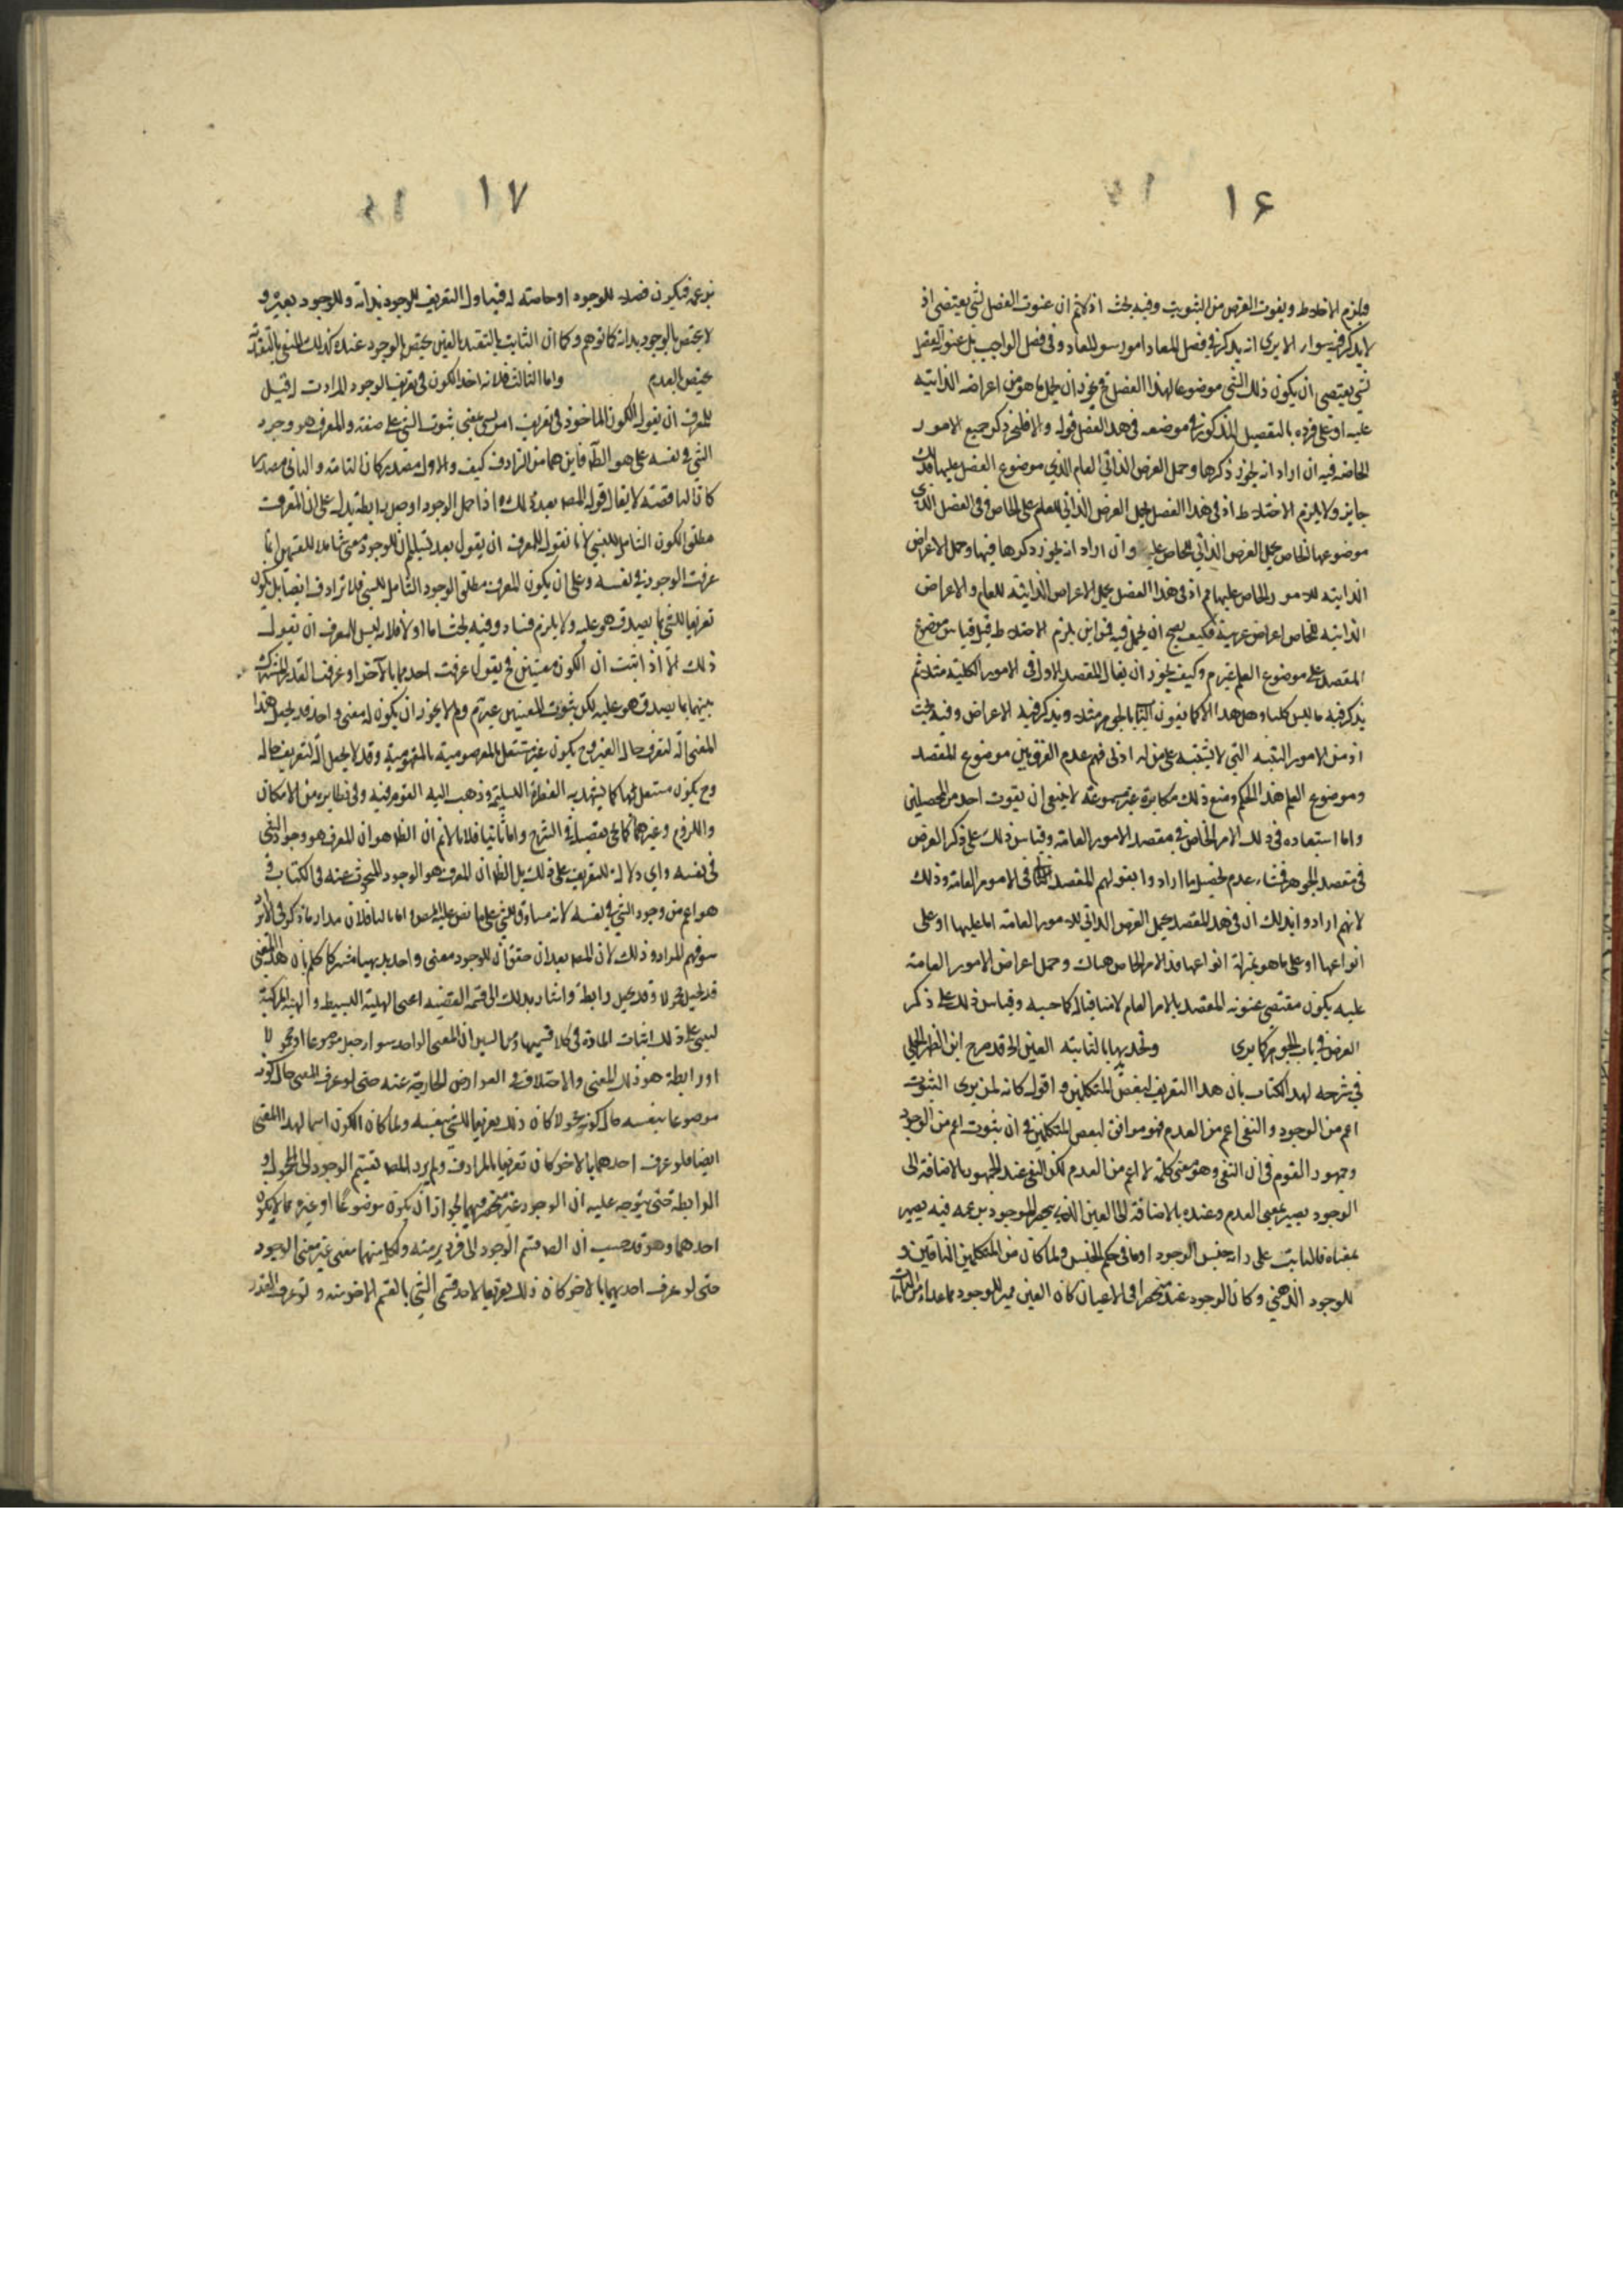 ۱۶
ويلزم الاختلاط ويفوت الغرض من التبويب وفيه بحث اذ لا نم ان عنوان الفصل لشئ يقتضى اذ
لا يذكر فيه سواه الا يرى انه يذكر في فصل المعاد امور سوى المعاد وفى فصل الواجب بل عنوان الفصل
لشئ يقتضى ان يكون ذلك الشئ موضوعا لهذا الفصل فح يجوز ان يحمل ما هو من اعراضه الذاتيه
عليه او على افراده بالتفصيل المذكور في موضعه فى هذا الفصل قوله والا فليجز ذكر جميع الامور
الخاصه فيه ان اراد انه يجوز ذكرها وحمل العرض الذاتي العام الذي موضوع الفصل عليها فذلك
جايز ولا يلزم الاختلاط اذ فى هذا الفصل يحمل العرض الذاتي للعام على الخاص وفى الفصل الذى
موضوعها الخاص يحمل العرض الذاتي للخاص عليه وان اراد انه يجوز ذكرها فيها وحمل الاعراض
الذاتيه للامور الخاص عليها فم اذ فى هذا الفصل يحمل الاعراض الذاتيه للعام والاعراض
الذاتيه للخاص اعراض غريبة فكيف يصح ان يحمل فيه فمن اين يلزم الاختلاط قيل قياس موضوع
المقصد على موضوع العلم غير م وكيف يجوز ان يقال المقصد الاول فى الامور الكليه مثلا ثم
يذكر فيه ما ليس كليا وهل هذا الا كما يعنون الباب بالجوهر مثلا ويذكر فيه الاعراض وفيه بحث
اذ من الامور البينه التي لا يشتبه على من له ادنى فهم عدم الفرق بين موضوع المقصد
وموضوع العلم هذا الحكم ومنع ذلك مكابرة غير مسموعة لا ينبغى ان يفوت احد من المحصلين
واما استبعاده فى ذلك الامر الخاص في مقصد الامور العامه وقياس ذلك على ذكر العرض
فى مقصد الجوهر فمنشاء عدم تحصيل ما ارادوا بقولهم المقصد فى الامور العامة وذلك
لانهم ارادوا بذلك ان فى هذا المقصد يحمل العرض الذاتي للامور العامه اما عليها او على
انواعها او على ما هو بمنزلة انواعها فذ الامر الخاص هناك وحمل اعراض الامور العامة
عليه يكون مقتضى عنونه المقصد بالامر العام لا منافيا له كما حسبه وقياس ذلك على ذكر
العرض في باب الجوهر كما يرى وتحديدهما بالثابته العين الخ قد صرح ابن المطهر الحلي
في شرحه لهذا الكتاب بان هذا التعريف لبعض المتكلمين واقول كانه لمن يرى الثبوت
اعم من الوجود والنفى اعم من العدم فهو موافق لبعض المتكلمين فى ان ثبوت اعم من الوجود
وجمهور القوم فى ان النفى وهو معنى كلمة لا اعم من العدم لكن النفى عند الجمهور بالاضافة الى
الوجود يصير بمعنى العدم وعنده بالاضافة الى العين الذى يحصر الموجود بزعمه فيه يصير
بمعناه فالثابت على رايه جنس الوجود او ما فى حكم الجنس ولما كان من المتكلمين النافين
للوجود الذهني وكان الوجود عنده منحصرا فى الاعيان كان العين مميز للوجود مما عداه من الثابتات
۱۷
بزعمه فيكون فصلا للوجود او خاصته له فيتناول التعريف للوجود بذاته وللوجود بغيره و
لا يختص بالوجود بذاته كما توهم وكما ان الثابت بالتقييد بالعين يختص بالوجود عنده كذلك المنفى بالتقييد
يختص بالعدم واما الثالث فلانه اخذ الكون فى تعريف الوجود المرادف له قيل
للمعرف ان يقول الكون الماخوذ فى تعريف امر نسبى يعنى ثبوت الشئ على صفته والمعرف هو وجود
الشئ فى نفسه على ما هو الظ فاين هما من الترادف كيف والاول مصدر كان التامه والثانى مصدر
كان الناقصه لا يقال قول المصه بعد ذلك واذا حمل الوجود او جعل رابطة يدل على ان المعرف
مطلق الكون الشامل للنسبى لانا نقول للمعرف ان يقول بعد تسليم ان للوجود معنى شاملا للقسمين انما
عرفت الوجود فى نفسه وعلى ان يكون المعرف مطلق الوجود الشامل للنسبى فلا ترادف ايضا بل يكون
تعريفا للشئ بما يصدق هو عليه ولا يلزم فساد وفيه بحث اما اولا فلانه ليس للمعرف ان يقول
ذلك الا اذ اثبت ان للكون معنيين فح يقول عرفت احدهما بالآخر او عرفت القدر المشترك
بينهما بما يصدق هو عليه لكن ثبوت المعنيين غير م ولم لا يجوز ان يكون له معنى واحد قد يجعل هذا
المعنى آلة لتعرف حال الغير وح يكون غير مستقل بالمفهومية وقد لا يجعل آلة لتعريف حاله
وح يكون مستقل بها كما يشهد به الفطرة السليمة وذهب اليه القوم فيه وفى نظايره من الامكان
واللزوم وغيرهما كما يجئ تفصيله فى الشرح واما ثانيا فلانا لا نم ان الظ هو ان المعرف هو وجود الشئ
فى نفسه واى دلالة للتعريف على ذلك بل الظ ان المعرف هو الوجود المبحوث عنه فى الكتاب و
هو اعم من وجود الشئ فى نفسه لانه مساوق للشئ على ما نص عليه المصه واما ثالثا فلان مدار ما ذكر فى الامر
سوء فهم المراد وذلك لان المصه بعد ان حقق ان للوجود معنى واحد بديهيا مشتركا حكم بان هذا المعنى
قد يجعل محمولا وقد يجعل رابطة واشار بذلك الى قسمى القضيه اعنى الهلية البسيطه والهلية المركبة
ليبنى على ذلك اثبات المادة فى كلا قسميها ومن البين ان المعنى الواحد سواء جعل موضوعا او محمولا
او رابطة هو ذلك المعنى والاختلاف فى العوارض الخارجة عنه حتى لو عرف المعنى حال كونه
موضوعا بنفسه حال كونه محمولا كان ذلك تعريفا للشئ بنفسه ولما كان الكون اسما لهذا المعنى
ايضا فلو عرف احدهما بالاخر كان تعريفا بالمرادف ولم يرد المصه تقسيم الوجود الى المحمول و
الرابطة حتى يتوجه عليه ان الوجود غير منحصر فيهما لجواز ان يكون موضوعا او غيره مما لا يكون
احدهما وهو قد حسب ان المصه قسم الوجود الى فردين منه ولكل منهما معنى غير معنى الوجود
حتى لو عرف احديهما بالاخر كان ذلك تعريفا لاحد قسمى الشئ بالقسم الاخر منه ولو عرف القدر